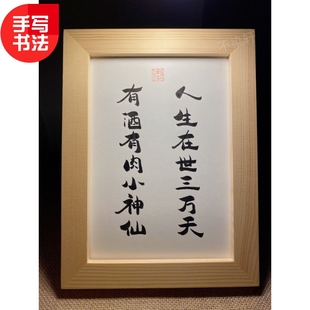 手写
书法
人生在世三万天
有酒有肉小神仙